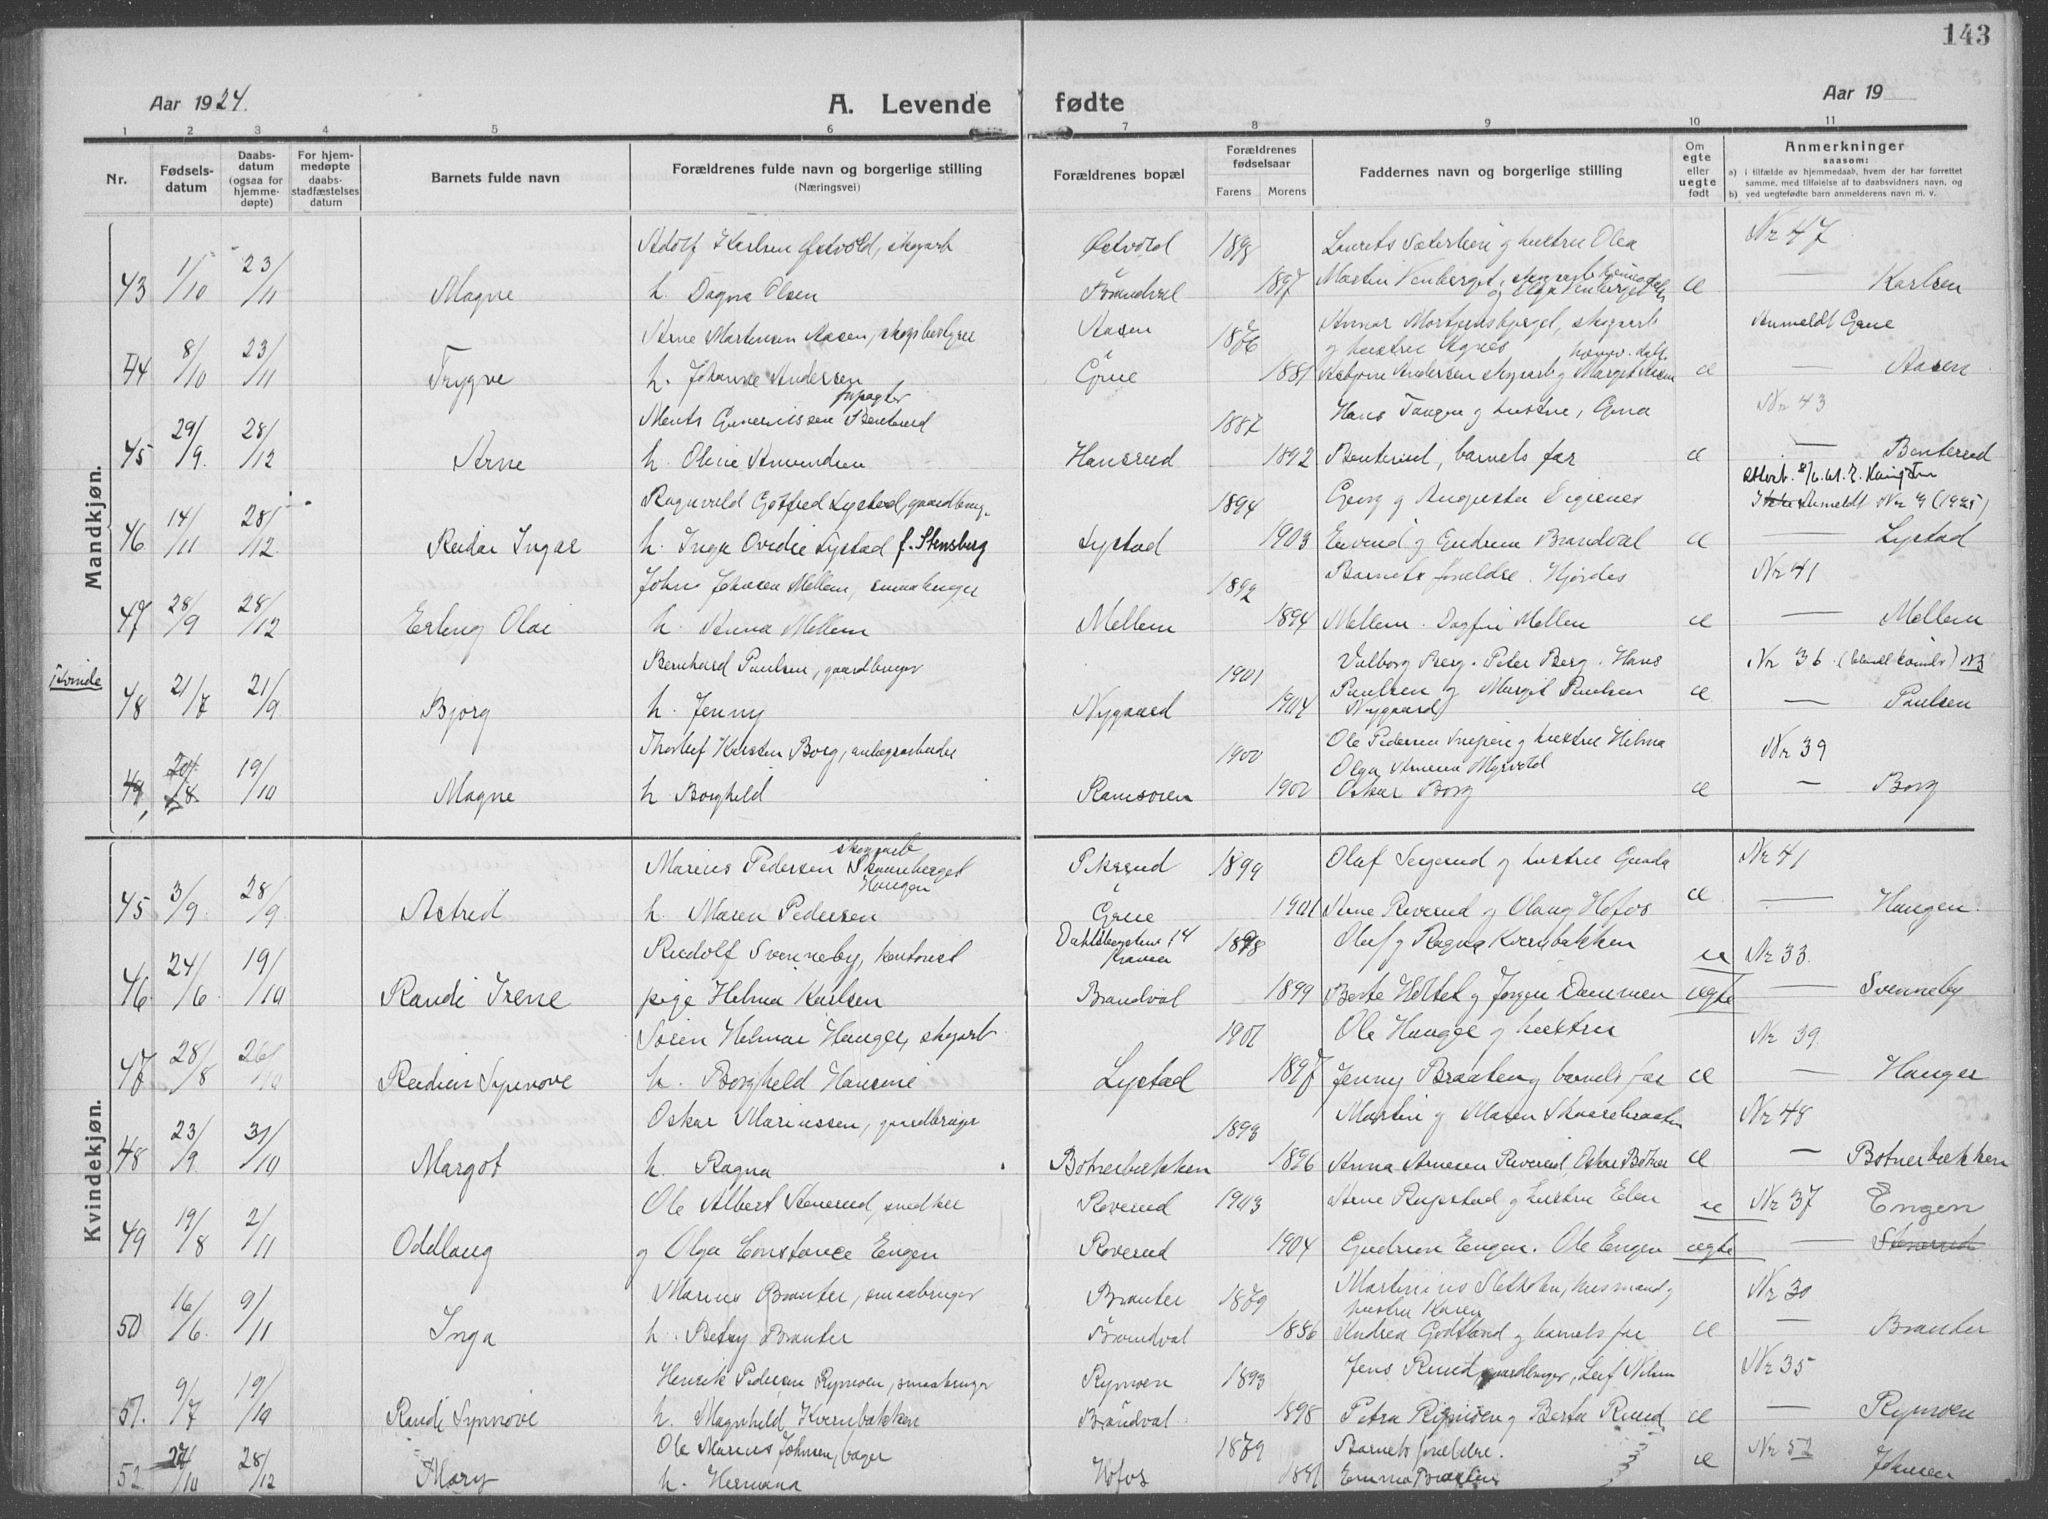 143
Aar 1924. A. Levende fødte Aar 19
1 2 3 4 5 6 7 8 9 10 11
Nr. Fødsels-datum Daabs-datum (ogsaa for hjemme-døpte) For hjem-medøpte daabs-stadfæstelses datum Barnets fulde navn Forældrenes fulde navn og borgerlige stilling (Næringsvei) Forældrenes bopæl Forældrenes fødselsaar Farens Morens Faddernes navn og borgerlige stilling Om egte eller uegte født Anmerkninger saasom: a) i tilfælde av hjemmedaab, hvem der har forrettet samme, med tilføielse af to daabsvidners navn, og b) ved uegtefødte barn anmelderens navn m. v.
Mandkjøn.
Adolf Karlsen Østvold, skogarb Østvold 1898 Laurits Sæterlien og hustru Olea Nr 47
43 1/10 23/11 Magne h. Dagna Olsen Brandval 1897 Martin Venberget, og Olga Venberget æ — Karlsen
Arne Martinsen Aasen, skogbestyrer Aasen 1876 skogarb Anmeldt Grue
og hustru Agnes
44 8/10 23/11 Trygve h. Johanne Andersen Grue 1881 Asbjørn Andersen skogarb og Margit Aasen æ — Aasen
forpagter
Benterud 1887 Hans Tangen og hustru, Nr 43
45 29/9. 28/12 Arne h. Oline Amundsen Hansrud 1892 Benterud, barnets far æ — Benterud
Ragnvald Gotfred Lystad, gaardbrug. 1894 Georg og Augusta Anmeldt Nr 9 (1925)
46 14/11 28/12 Reidar Ingar h. Inga Ovedie Lystad f. Stensberg Lystad 1903 Eivind og Gudrun Brandval æ — Lystad
John Johnsen Mellem, smaabruger 1892 Barnets foreldre. Hjørdis Nr 41
47 28/9 28/12 Erling Olai h. Anna Mellem Mellem 1894 Mellem. Dagfin Mellem æ — Mellem
Bernhard Paulsen, gaardbruger 1901 Valborg Berg. Peter Berg. Hans Nr 36 (blandt kvinder) NB
Kvinde 48 21/7 21/9 Bjørg h. Jenny Nygaard 1904 Paulsen og Margit Paulsen Nygaard æ — Paulsen
Thorleif Karsten Borg, anlægsarbeider 1900 Ole Pedersen og hustru Helma Nr 39
Olga Myrvold
49 20/8 19/10 Magne h Borghild Ramsøien 1900 Oskar Borg æ — Borg
Kvindekjøn.
skogarb
Marius Pedersen Skaareberget Haugen Pikerud 1899 Olaf Segerud og hustru Gunda Nr 41
45 3/9. 28/9 Astrid h. Maren Pedersen Grue 1901 Arne Roverud og Olaug Hofos æ — Haugen.
Rudolf Svenneby, kontorist 14 1898 Oluf og Ragna Kvernbakken Nr 33.
46 24/6 19/10 Randi Irene pige Helma Karlsen Brandval 1899 Berte Holtet og Jørgen Dammen uegte — Svenneby
Søren Helmar Hauger, skogarb 1901 Ole Hauger og hustru Nr 39.
47 28/8 26/10 Reidun Synnøve h. Borghild Hansine Lystad 1897 Jenny Braaten og barnets far æ — Hauger
Oskar Mariussen, gaardbruger 1893 Martin og Maren Skaarebraaten Nr 48
48 23/9. 31/10 Margot h. Ragna Botnerbækken 1896 Anna Arnesen Roverud, Oskar Botner æ — Botnerbækken
Ole Albert Stenerud, snedker Roverud 1903 Arne Rugstad og hustru Elen Nr 37 Engen
49 19/8 2/11 Oddlaug og Olga Constance Engen Roverud 1904 Gudrun Engen. Ole Engen uegte — Stenerud
Marius Branter, smaabruger Branter 1879 Martinius husmand og hustru Karen Nr 30
50 16/6. 9/11 Inga h. Betsy Branter Brandval 1886 Andrea Godtland og barnets far æ — Branter
Henrik Pedersen Rymoen, smaabruger Rymoen 1893 Jens Ruud, gaardbruger, Leif Nilsen Nr 35
51. 9/7 19/10 Randi Synnøve h. Magnhild Kvernbakken Brandval 1898 Petra Rymoen og Berta Ruud æ — Rymoen
Ole Marius Johnsen, bager 1879 Barnets foreldre. Nr 52
52 27/10 28/12 Mary h. Hermana Hofos 1881 Emma Braaten æ Johnsen